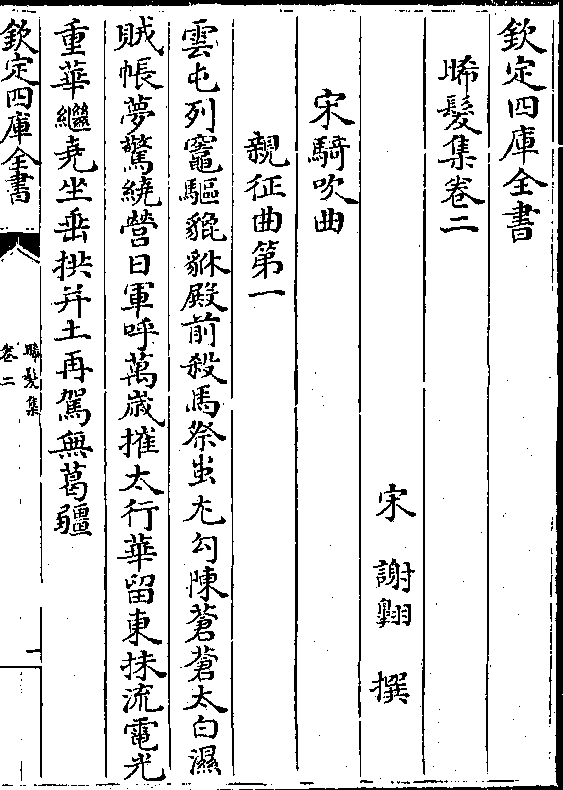 欽定四庫全書
晞髮集卷二
宋 謝翱 撰
宋騎吹曲
親征曲第一
雲屯列竈驅貔貅殿前殺馬祭蚩尤勾陳蒼蒼太白濕
賊帳夢驚繞營日軍呼萬歲摧太行華留東抹流電光
重華繼堯坐垂拱并土再駕無葛疆
欽定四庫全書
晞髮集
卷二
一